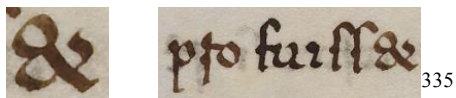 &
pſto fuiſſ& 335